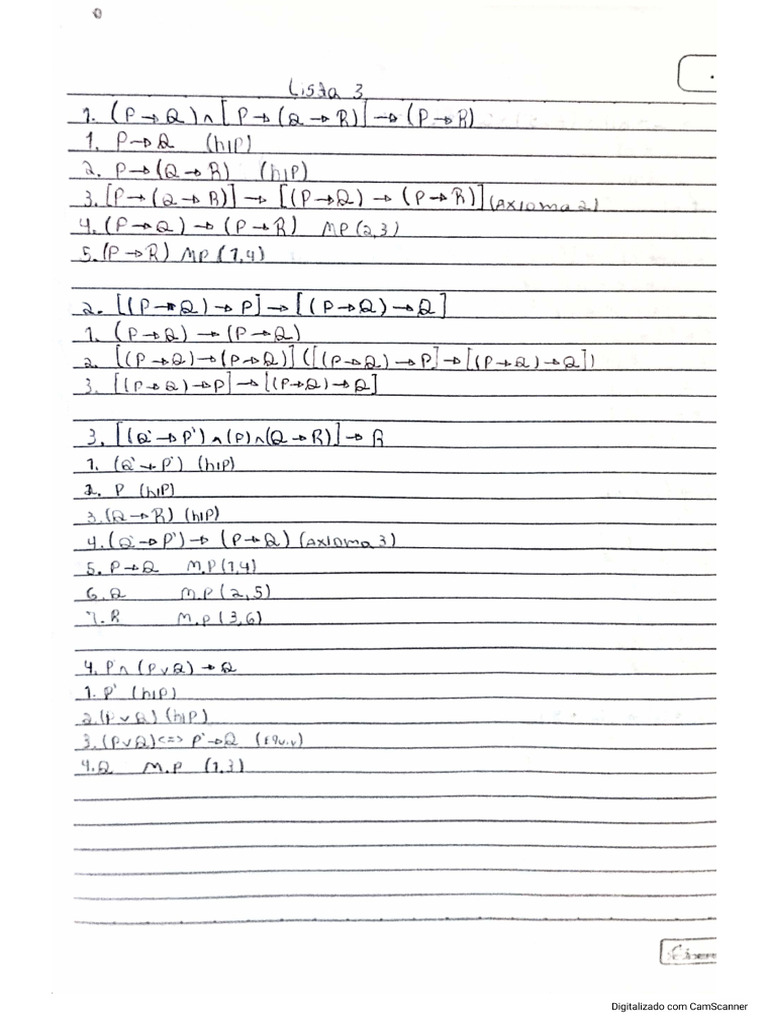 Lista 3
1. (P→Q)∧[P→(Q→R)]→(P→R)
1. P→Q (hip)
2. P→(Q→R) (hip)
3. [P→(Q→R)]→[(P→Q)→(P→R)] (Axioma 2)
4. (P→Q)→(P→R) MP(2,3)
5. (P→R) MP(1,4)
2. [(P→Q)→P]→[(P→Q)→Q]
1. (P→Q)→(P→Q)
2. [(P→Q)→(P→Q)]([(P→Q)→P]→[(P→Q)→Q])
3. [(P→Q)→P]→[(P→Q)→Q]
3. [(Q'→P')∧(P)∧(Q→R)]→R
1. (Q'→P') (hip)
2. P (hip)
3. (Q→R) (hip)
4. (Q'→P')→(P→Q) (Axioma 3)
5. P→Q M.P(1,4)
6. Q M.P(2,5)
7. R M.P(3,6)
4. P'∧(P∨Q)→Q
1. P' (hip)
2. (P∨Q) (hip)
3. (P∨Q)<=> P'→Q (Equiv)
4. Q M.P (1,3)
Digitalizado com CamScanner